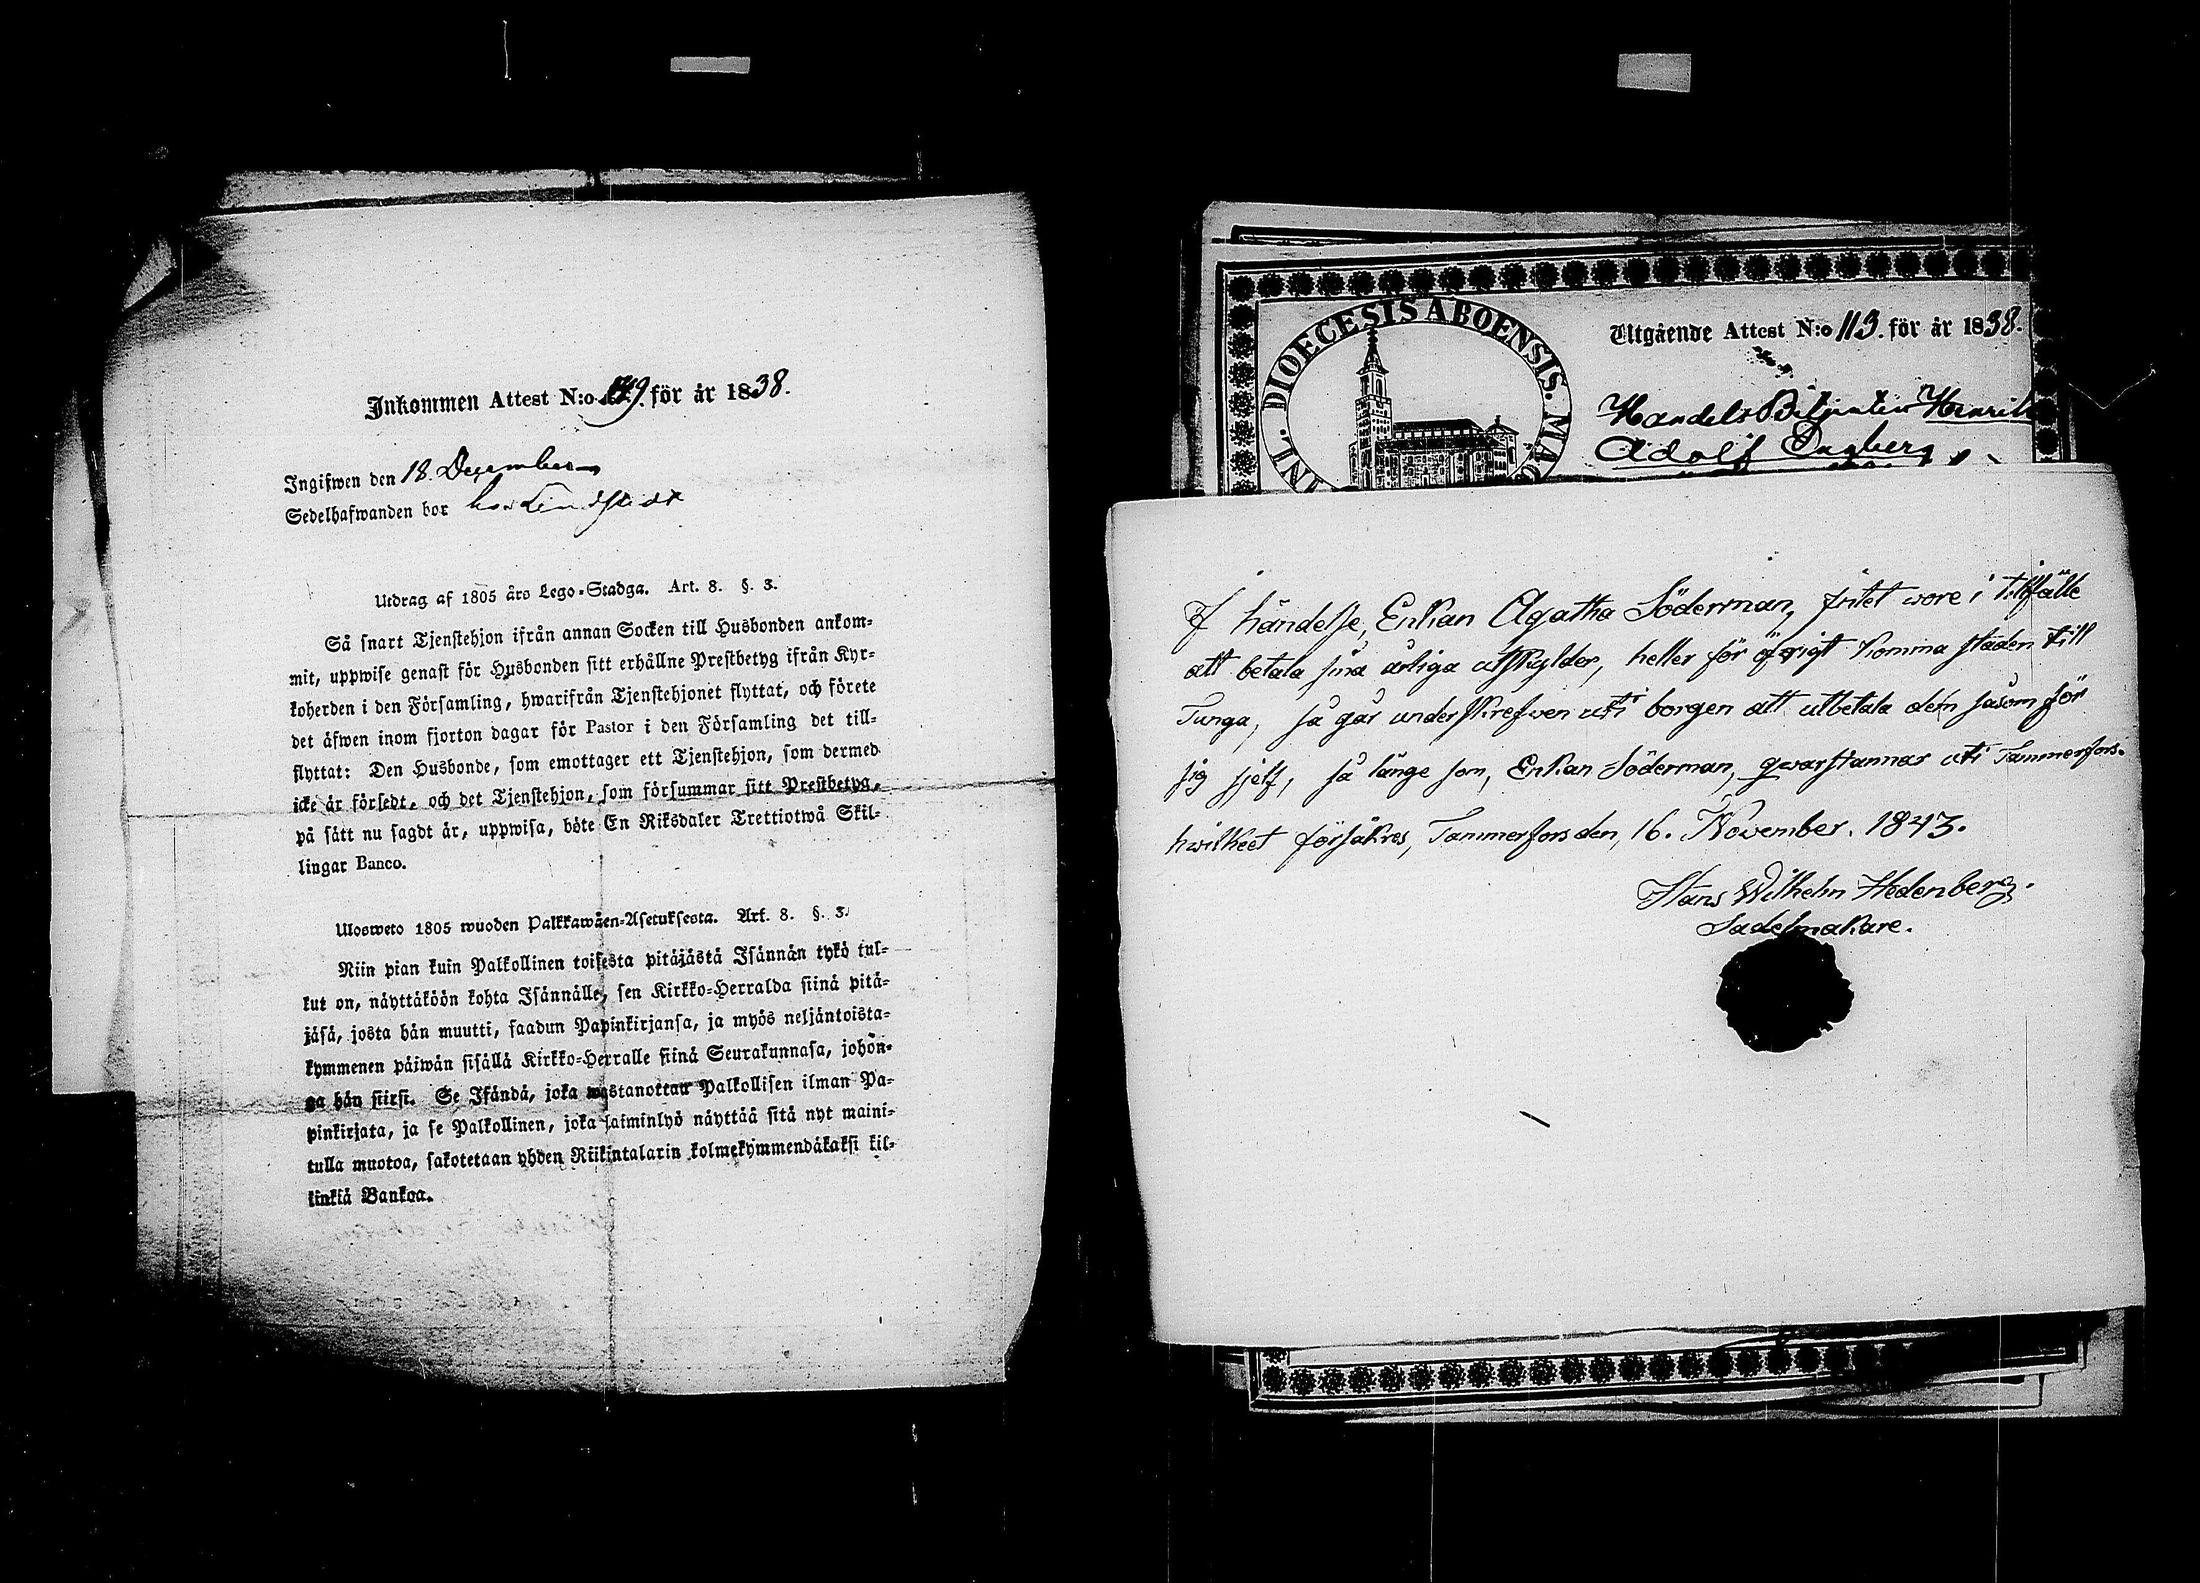 Inkommen Attest N:o 149. för år 1838.
Ingifwen den 18. December
Sedelhafwanden bor hos Lindstedt
Utdrag af 1805 års Lego-Stadga. Art. 8. §. 3.
Så snart Tjenstehjon ifrån annan Socken till Husbonden ankom-
mit, uppwise genast för Husbonden sitt erhållne Prestbetyg ifrån Kyr-
koherden i den Församling, hwarifrån Tjenstehjonet flyttat, och förete
det äfwen inom fjorton dagar för Pastor i den Församling det till-
flyttat: Den Husbonde, som emottager ett Tjenstehjon, som dermed
icke är försedt, och det Tjenstehjon, som försummar sitt Prestbetyg,
på sätt nu sagdt är, uppwisa, böte En Riksdaler Trettiotwå Skil-
lingar Banco.
Ulosweto 1805 wuoden Palkkawäen-Asetuksesta. Art. 8. §. 3.
Niin pian kuin Palkollinen toisesta pitäjästä Isännän tykö tul-
kut on, näyttäköön kohta Isännälle, sen Kirkko-Herralda siinä pitä-
jäsä, josta hän muutti, saadun Papinkirjansa, ja myös neljäntoista-
kymmenen päiwän sisällä Kirkko-Herralle siinä Seurakunnasa, johön-
ga hän siirsi. Se Isändä, joka wastanottaa Palkollisen ilman Pa-
pinkirjata, ja se Palkollinen, joka laiminlyö näyttää sitä nyt maini-
tulla muotoa, sakotetaan yhden Riikintalarin kolmekymmendäkaksi kil-
linkiä Bankoa.
DIOECESIS ABOENSIS. MAG
Utgående Attest N:o 113. för år 1838.
Handels Betjenten Henrik
Adolf Engberg
I händelse, Enkan Agatha Söderman, intet wore i tillfälle
att betala sina årliga utskylder, heller för öfrigt komma staden till
Tunga, så går underskrefwen uti borgen att utbetala dem såsom för
sig sjelf, så länge som, Enkan Söderman, qwarstannar uti Tammerfors.
hwilket försäkras, Tammerfors den, 16. November. 1843.
Hans Wilhelm Hedenberg.
Sadelmakare.